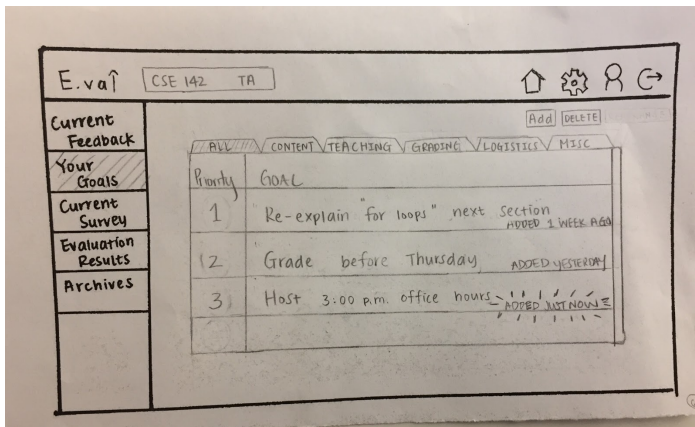 E.val
CSE 142 TA
Add DELETE
Current
Feedback
Your
Goals
Current
Survey
Evaluation
Results
Archives
ALL CONTENT TEACHING GRADING LOGISTICS MISC
Priority GOAL
1 Re-explain "for loops" next section
ADDED 1 WEEK AGO
2 Grade before Thursday ADDED YESTERDAY
3 Host 3:00 p.m. office hours ADDED JUST NOW